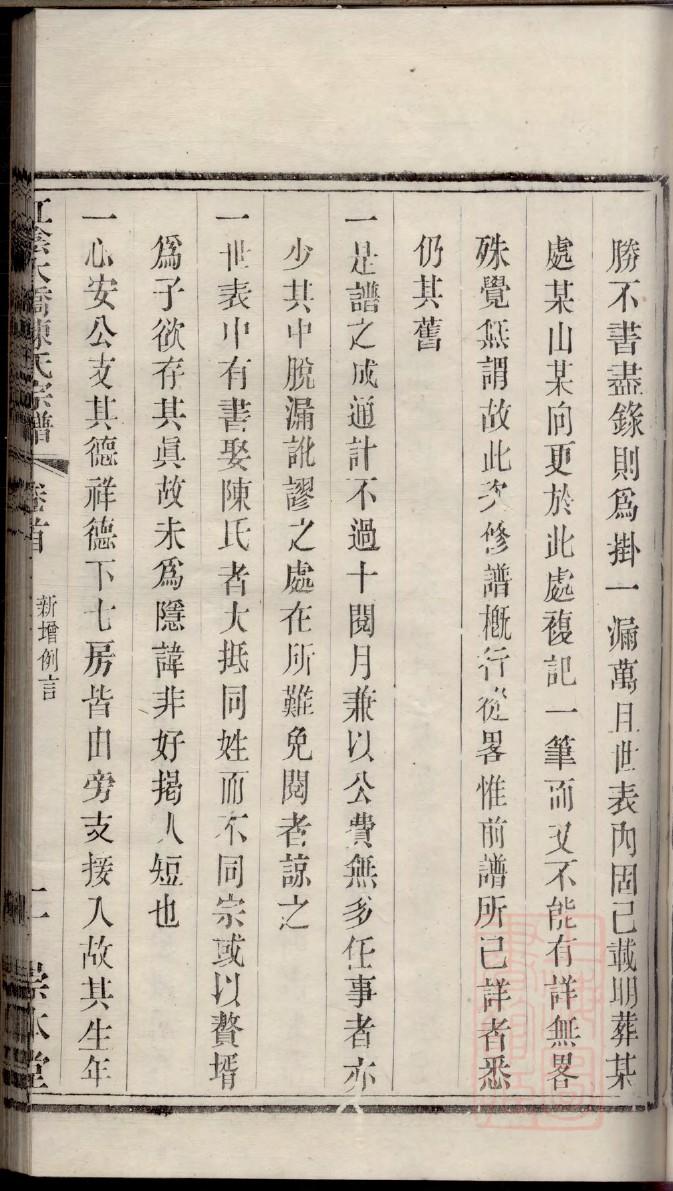 勝不書盡錄則爲掛一漏萬且世表內固已載明葬某
處某山某向更於此處複記一筆而又不能有詳無畧
殊覺無謂故此次修譜槪行從畧惟前譜所已詳者悉
仍其舊
一是譜之成通計不過十閱月兼以公費無多任事者亦
少其中脫漏訛謬之處在所難免閱者諒之
一世表中有書娶陳氏者大抵同姓而不同宗或以贅壻
爲子欲存其眞故未爲隱諱非好揭人短也
一心安公支其德祥德下七房皆由旁支接入故其生年
江陰大橋陳氏宗譜 卷首 新增例言 崇本堂